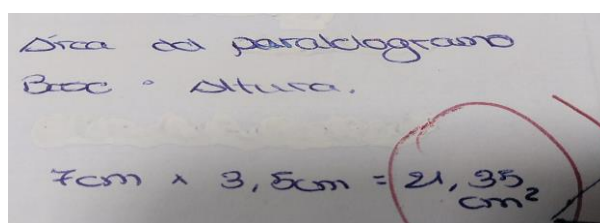 Área del paralelogramo
Base · Altura.
7cm x 3,5cm = 21,35 cm²